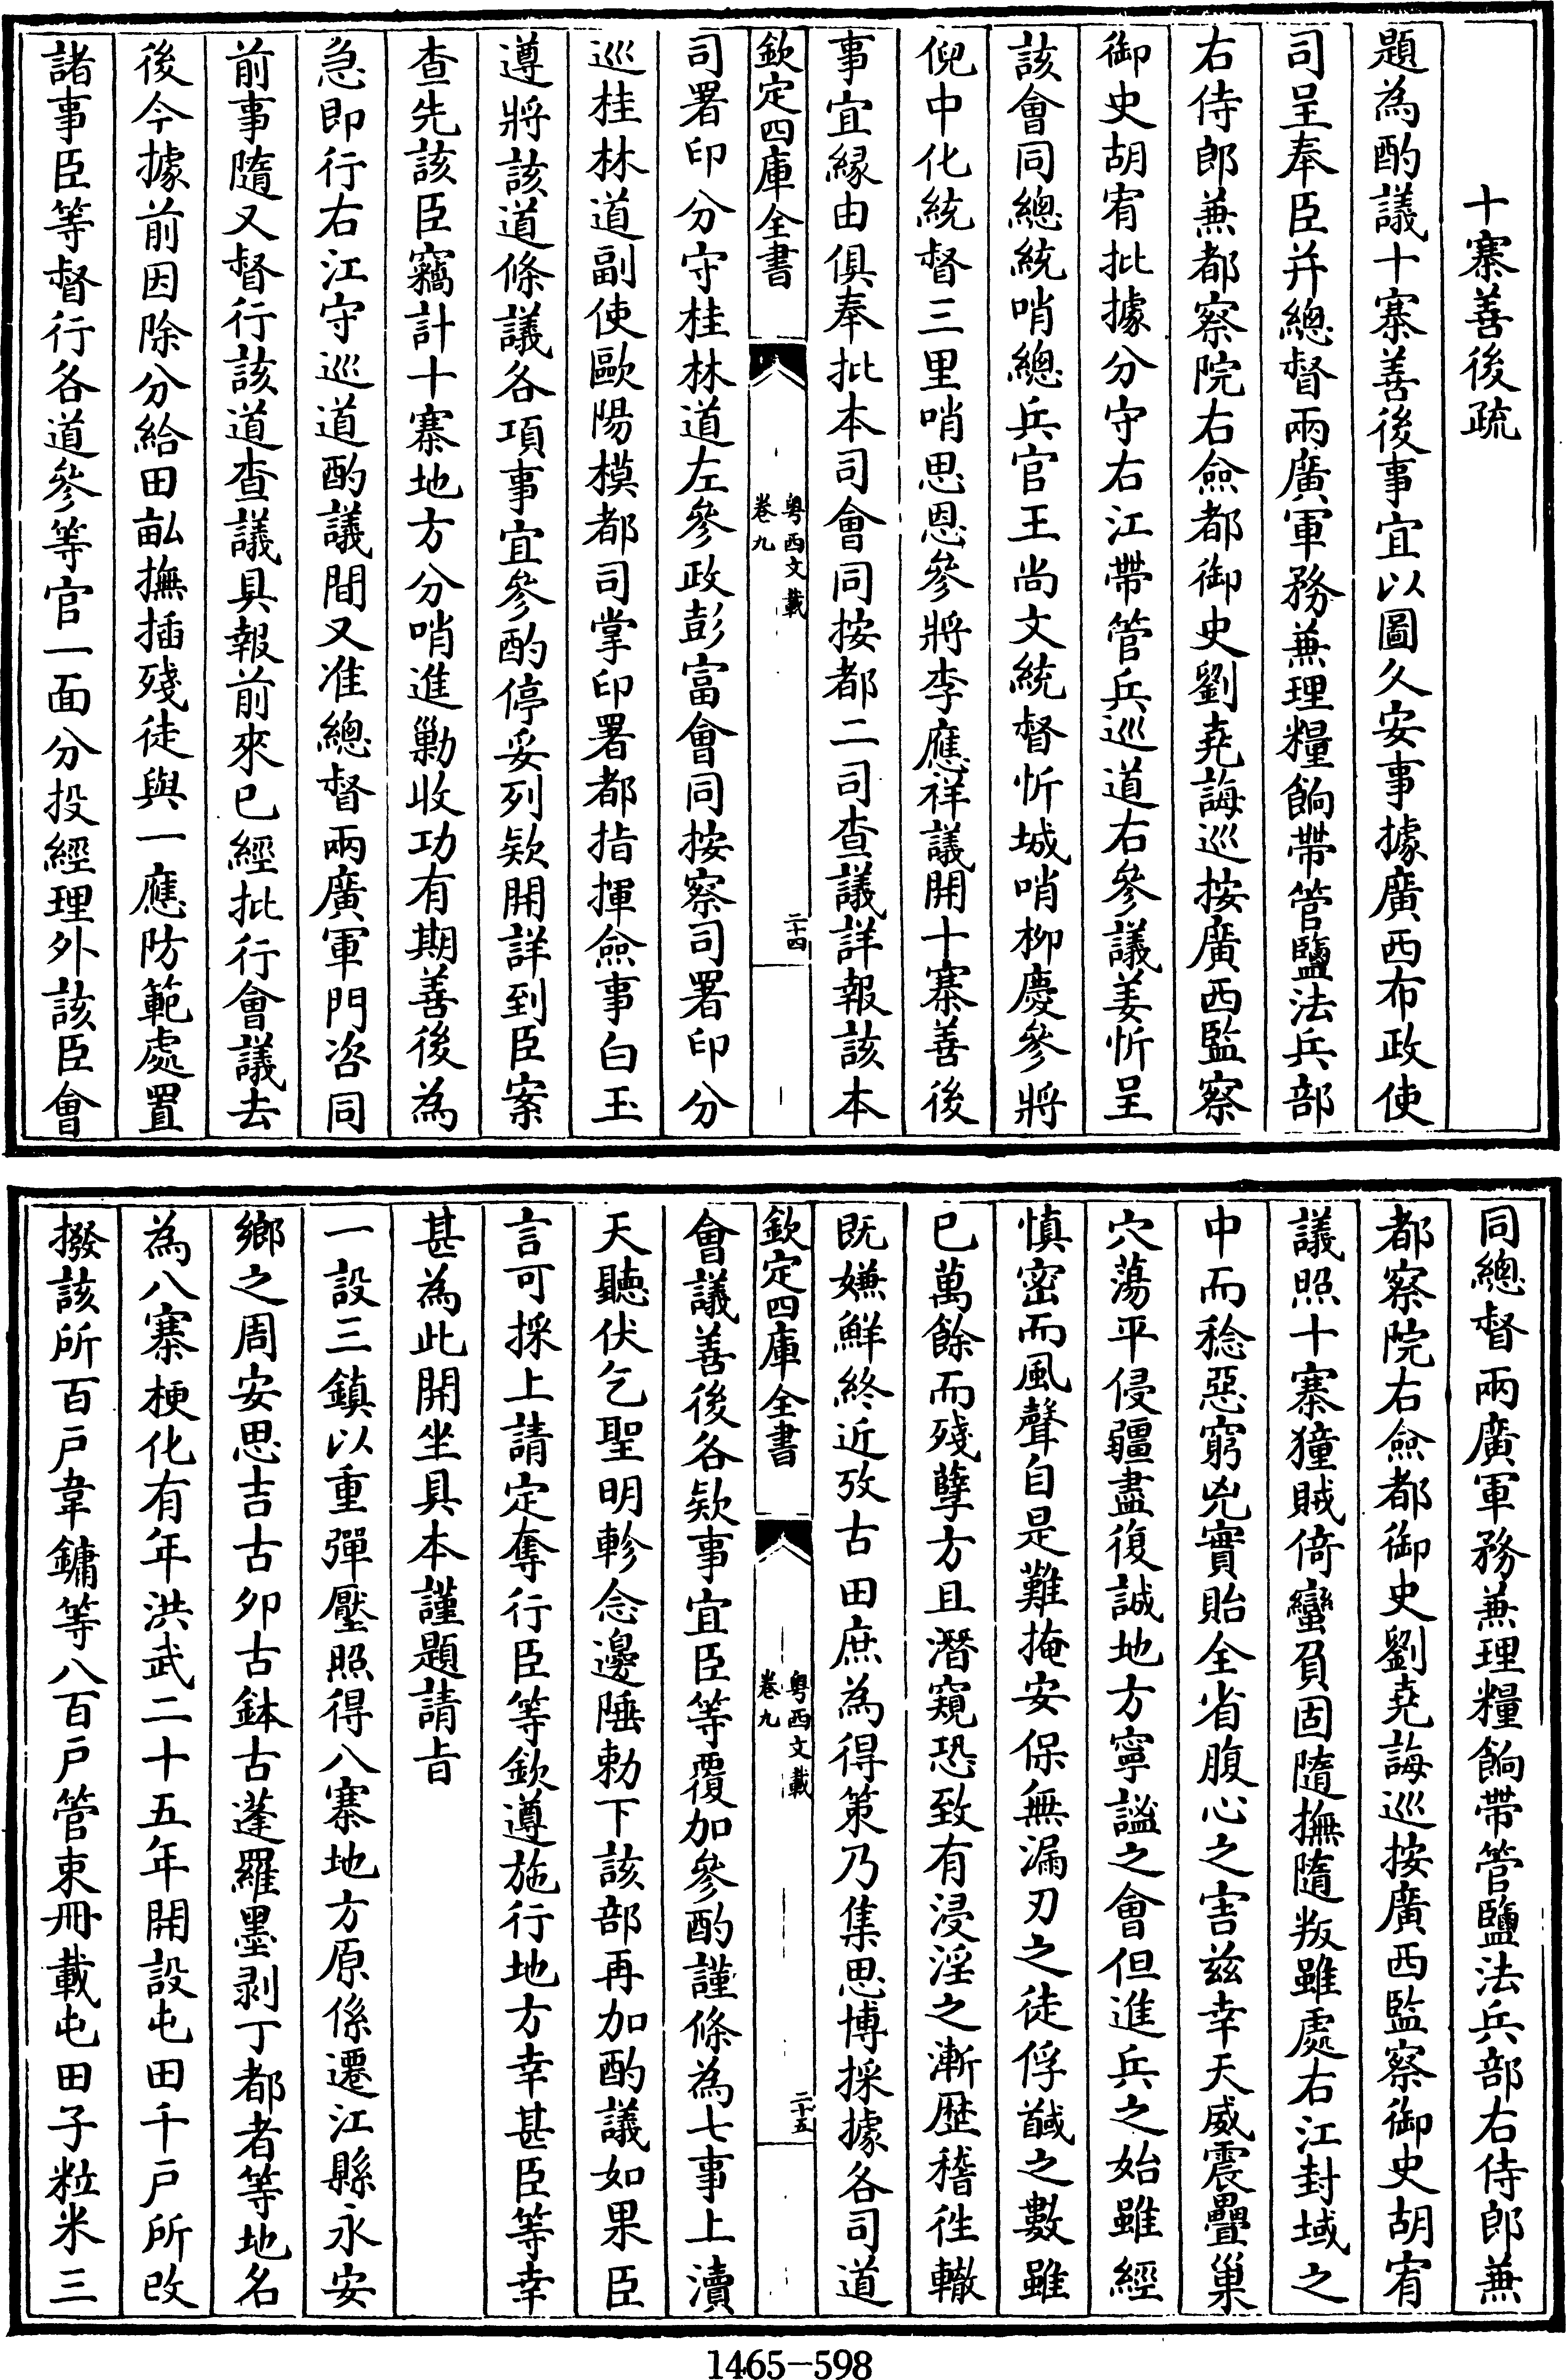 十寨善後疏
題為酌議十寨善後事宜以圖久安事據廣西布政使
司呈奉臣并總督兩廣軍務兼理糧餉帶管鹽法兵部
右侍郎兼都察院右僉都御史劉堯誨巡按廣西監察
御史胡宥批據分守右江帶管兵巡道右參議姜忻呈
該會同總統哨總兵官王尚文統督忻城哨柳慶參將
倪中化統督三里哨思恩參將李應祥議開十寨善後
事宜緣由俱奉批本司會同按都二司查議詳報該本
欽定四庫全書
粵西文載
卷九
二十四
司署印分守桂林道左參政彭富會同按察司署印分
巡桂林道副使歐陽模都司掌印署都指揮僉事白玉
遵將該道條議各項事宜參酌停妥列欵開詳到臣案
查先該臣竊計十寨地方分哨進勦收功有期善後為
急即行右江守巡道酌議間又准總督兩廣軍門咨同
前事隨又督行該道查議具報前來已經批行會議去
後今據前因除分給田畆撫插殘徒與一應防範處置
諸事臣等督行各道參等官一面分投經理外該臣會
同總督兩廣軍務兼理糧餉帶管鹽法兵部右侍郎兼
都察院右僉都御史劉堯誨巡按廣西監察御史胡宥
議照十寨獞賊倚蠻負固隨撫隨叛雖處右江封域之
中而稔惡窮兇實貽全省腹心之害兹幸天威震疊巢
穴蕩平侵疆盡復誠地方寧謐之會但進兵之始雖經
慎密而風聲自是難掩安保無漏刃之徒俘馘之數雖
已萬餘而殘孽方且潛窺恐致有浸淫之漸歷稽徃轍
既嫌鮮終近攷古田庶為得策乃集思博採據各司道
欽定四庫全書
粵西文載
卷九
二十五
會議善後各欵事宜臣等覆加參酌謹條為七事上瀆
天聽伏乞聖明軫念邊陲勅下該部再加酌議如果臣
言可採上請定奪行臣等欽遵施行地方幸甚臣等幸
甚為此開坐具本謹題請旨
一設三鎮以重彈壓照得八寨地方原係遷江縣永安
鄉之周安思吉古卯古鉢古蓬羅墨剥丁都者等地名
為八寨梗化有年洪武二十五年開設屯田千戶所改
撥該所百戶韋鏞等八百戶管束冊載屯田子粒米三
1465-598